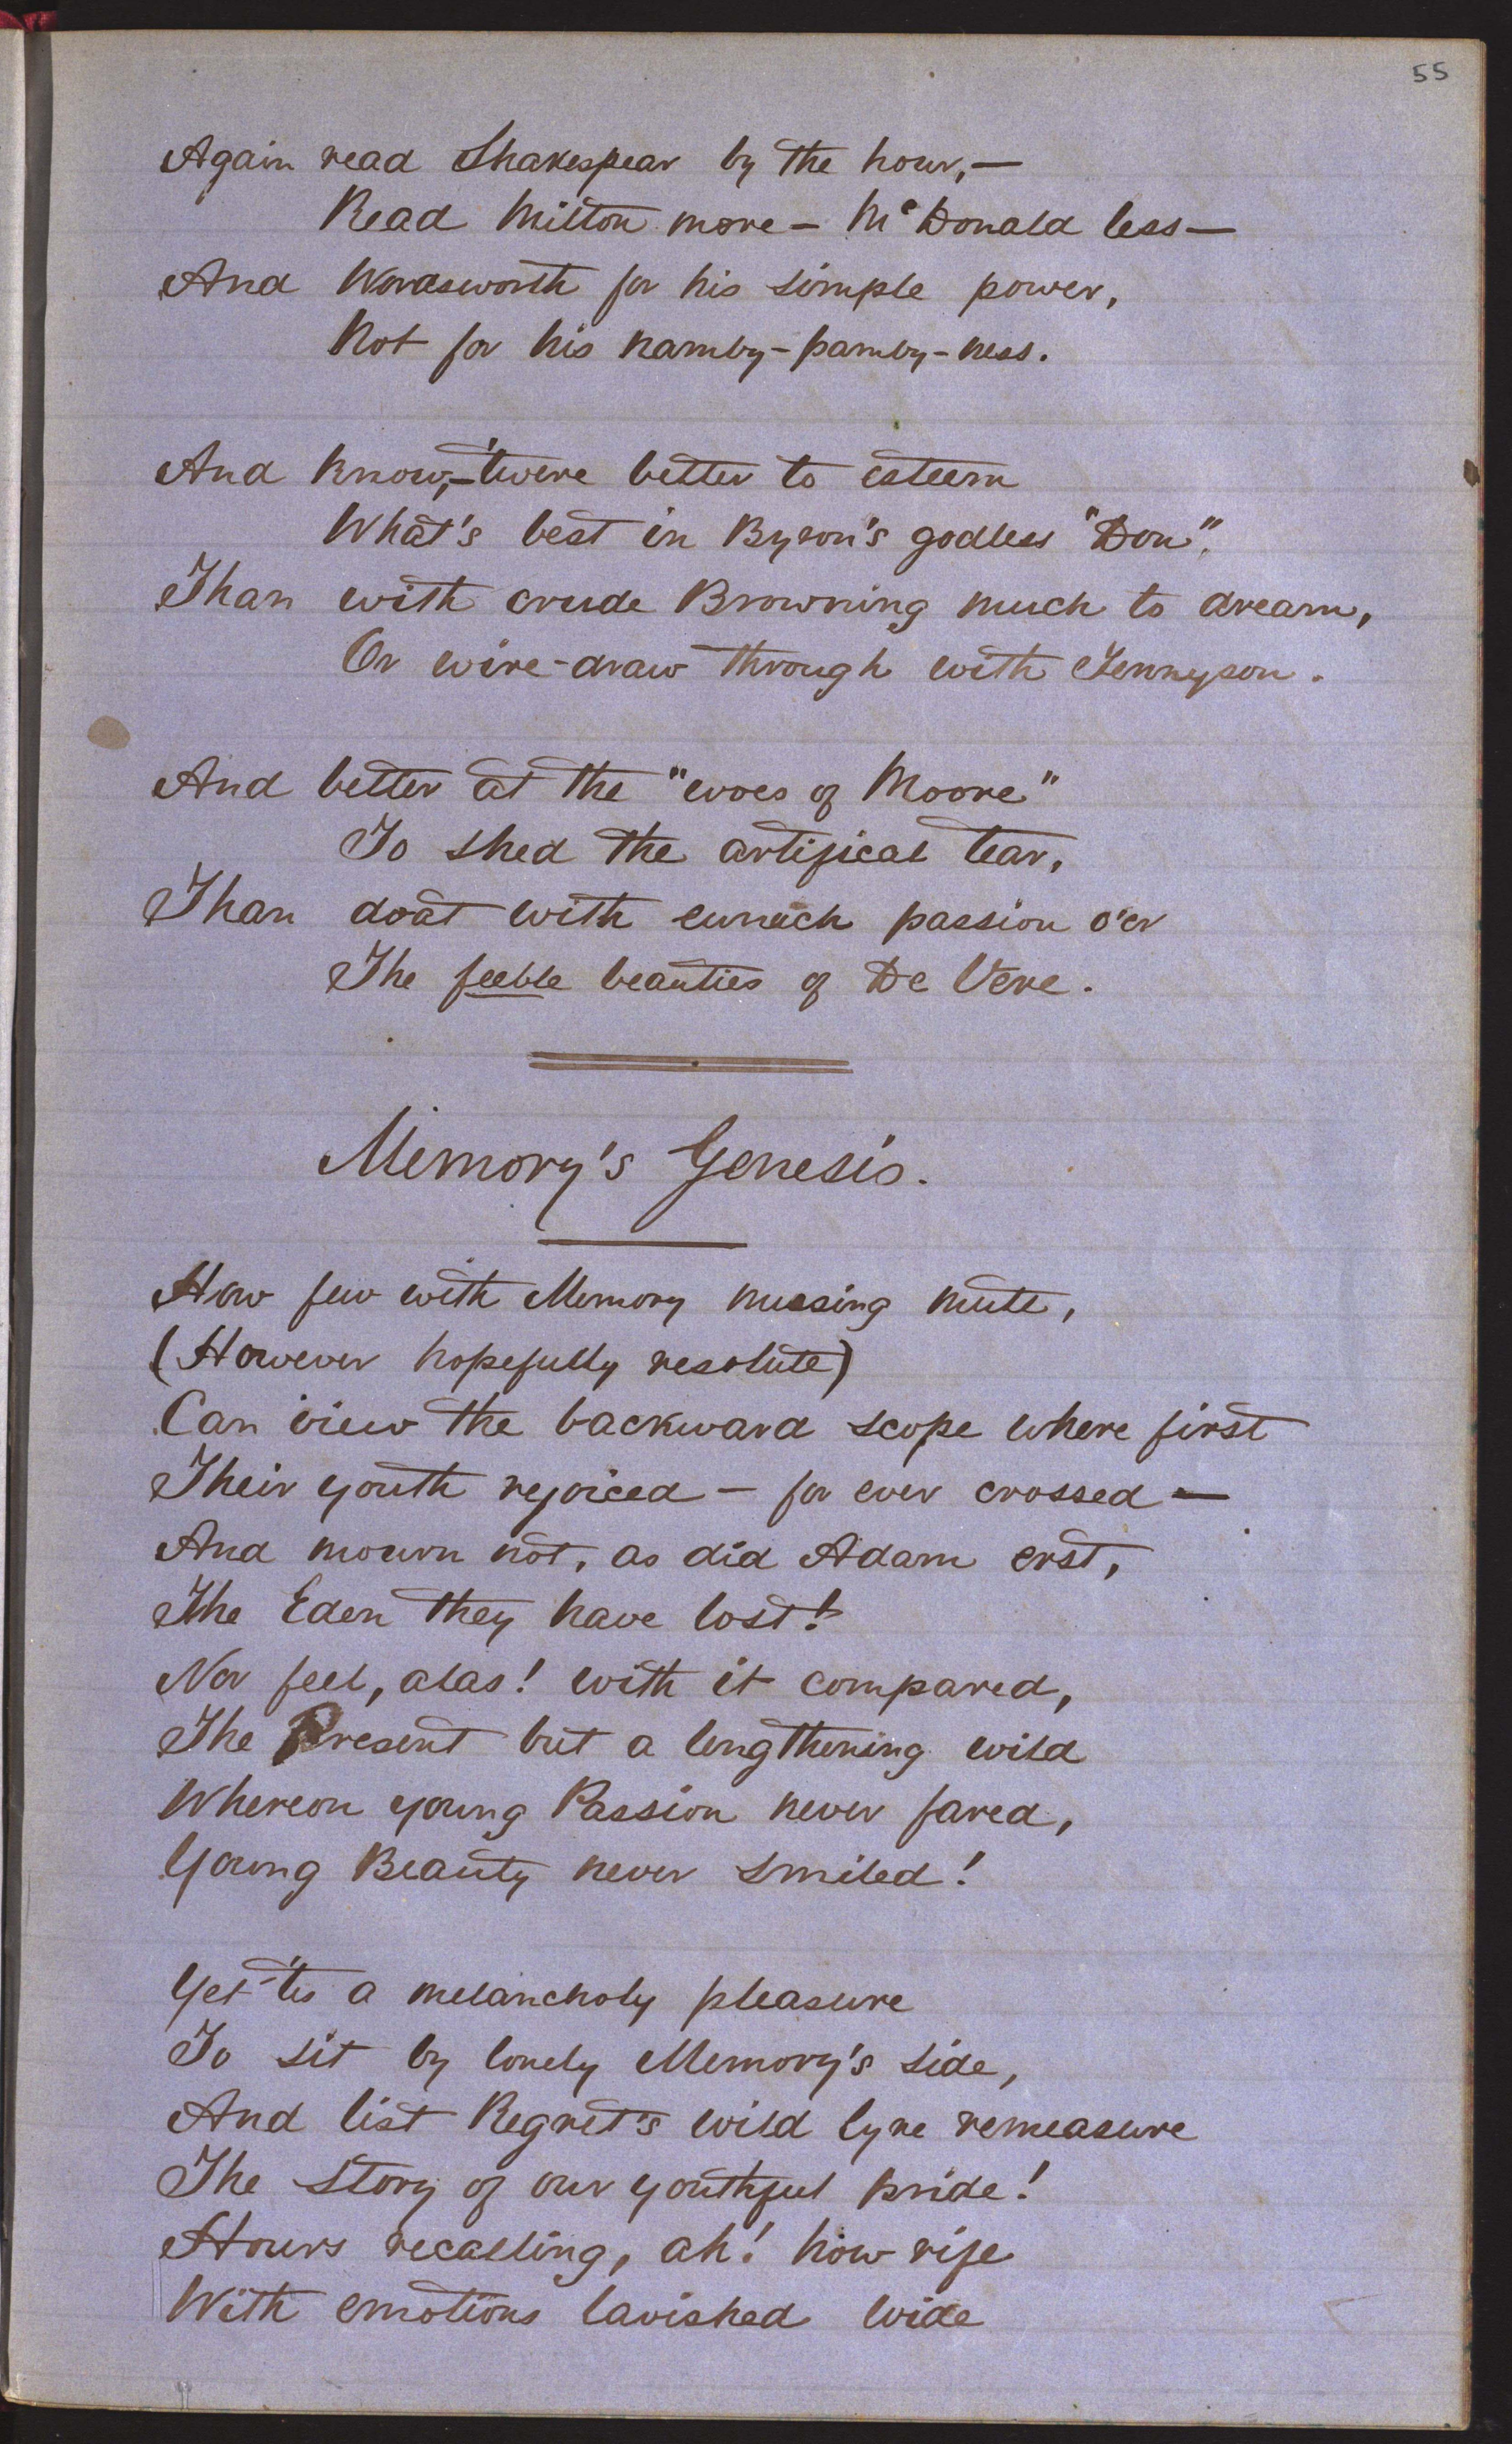 55
Again read Shakespear by the hour,—
Read Milton more — Mc Donald less —
And Wordsworth for his simple power,
Not for his namby-pamby-ness.
And know,—'twere better to esteem
What's best in Byron's godless "Don",
Than with crude Browning much to dream,
Or wire-draw through with Tennyson.
And better at the "woes of Moore"
To shed the artifical tear,
Than doat with eunuch passion o'er
The feeble beauties of De Vere.
Memory's Genesis.
How few with Memory mussing mute,
(However hopefully resolute)
Can view the backward scope where first
Their youth rejoiced — for ever crossed —
And mourn not, as did Adam erst,
The Eden they have lost!
Nor feel, alas! with it compared,
The Present but a lengthening wild
Whereon young Passion never fared,
Young Beauty never smiled!
Yet 'tis a melancholy pleasure
To sit by lonely Memory's side,
And list Regret's wild lyre remeasure
The story of our youthful pride!
Hours recalling, ah! how rife
With emotions lavished wide